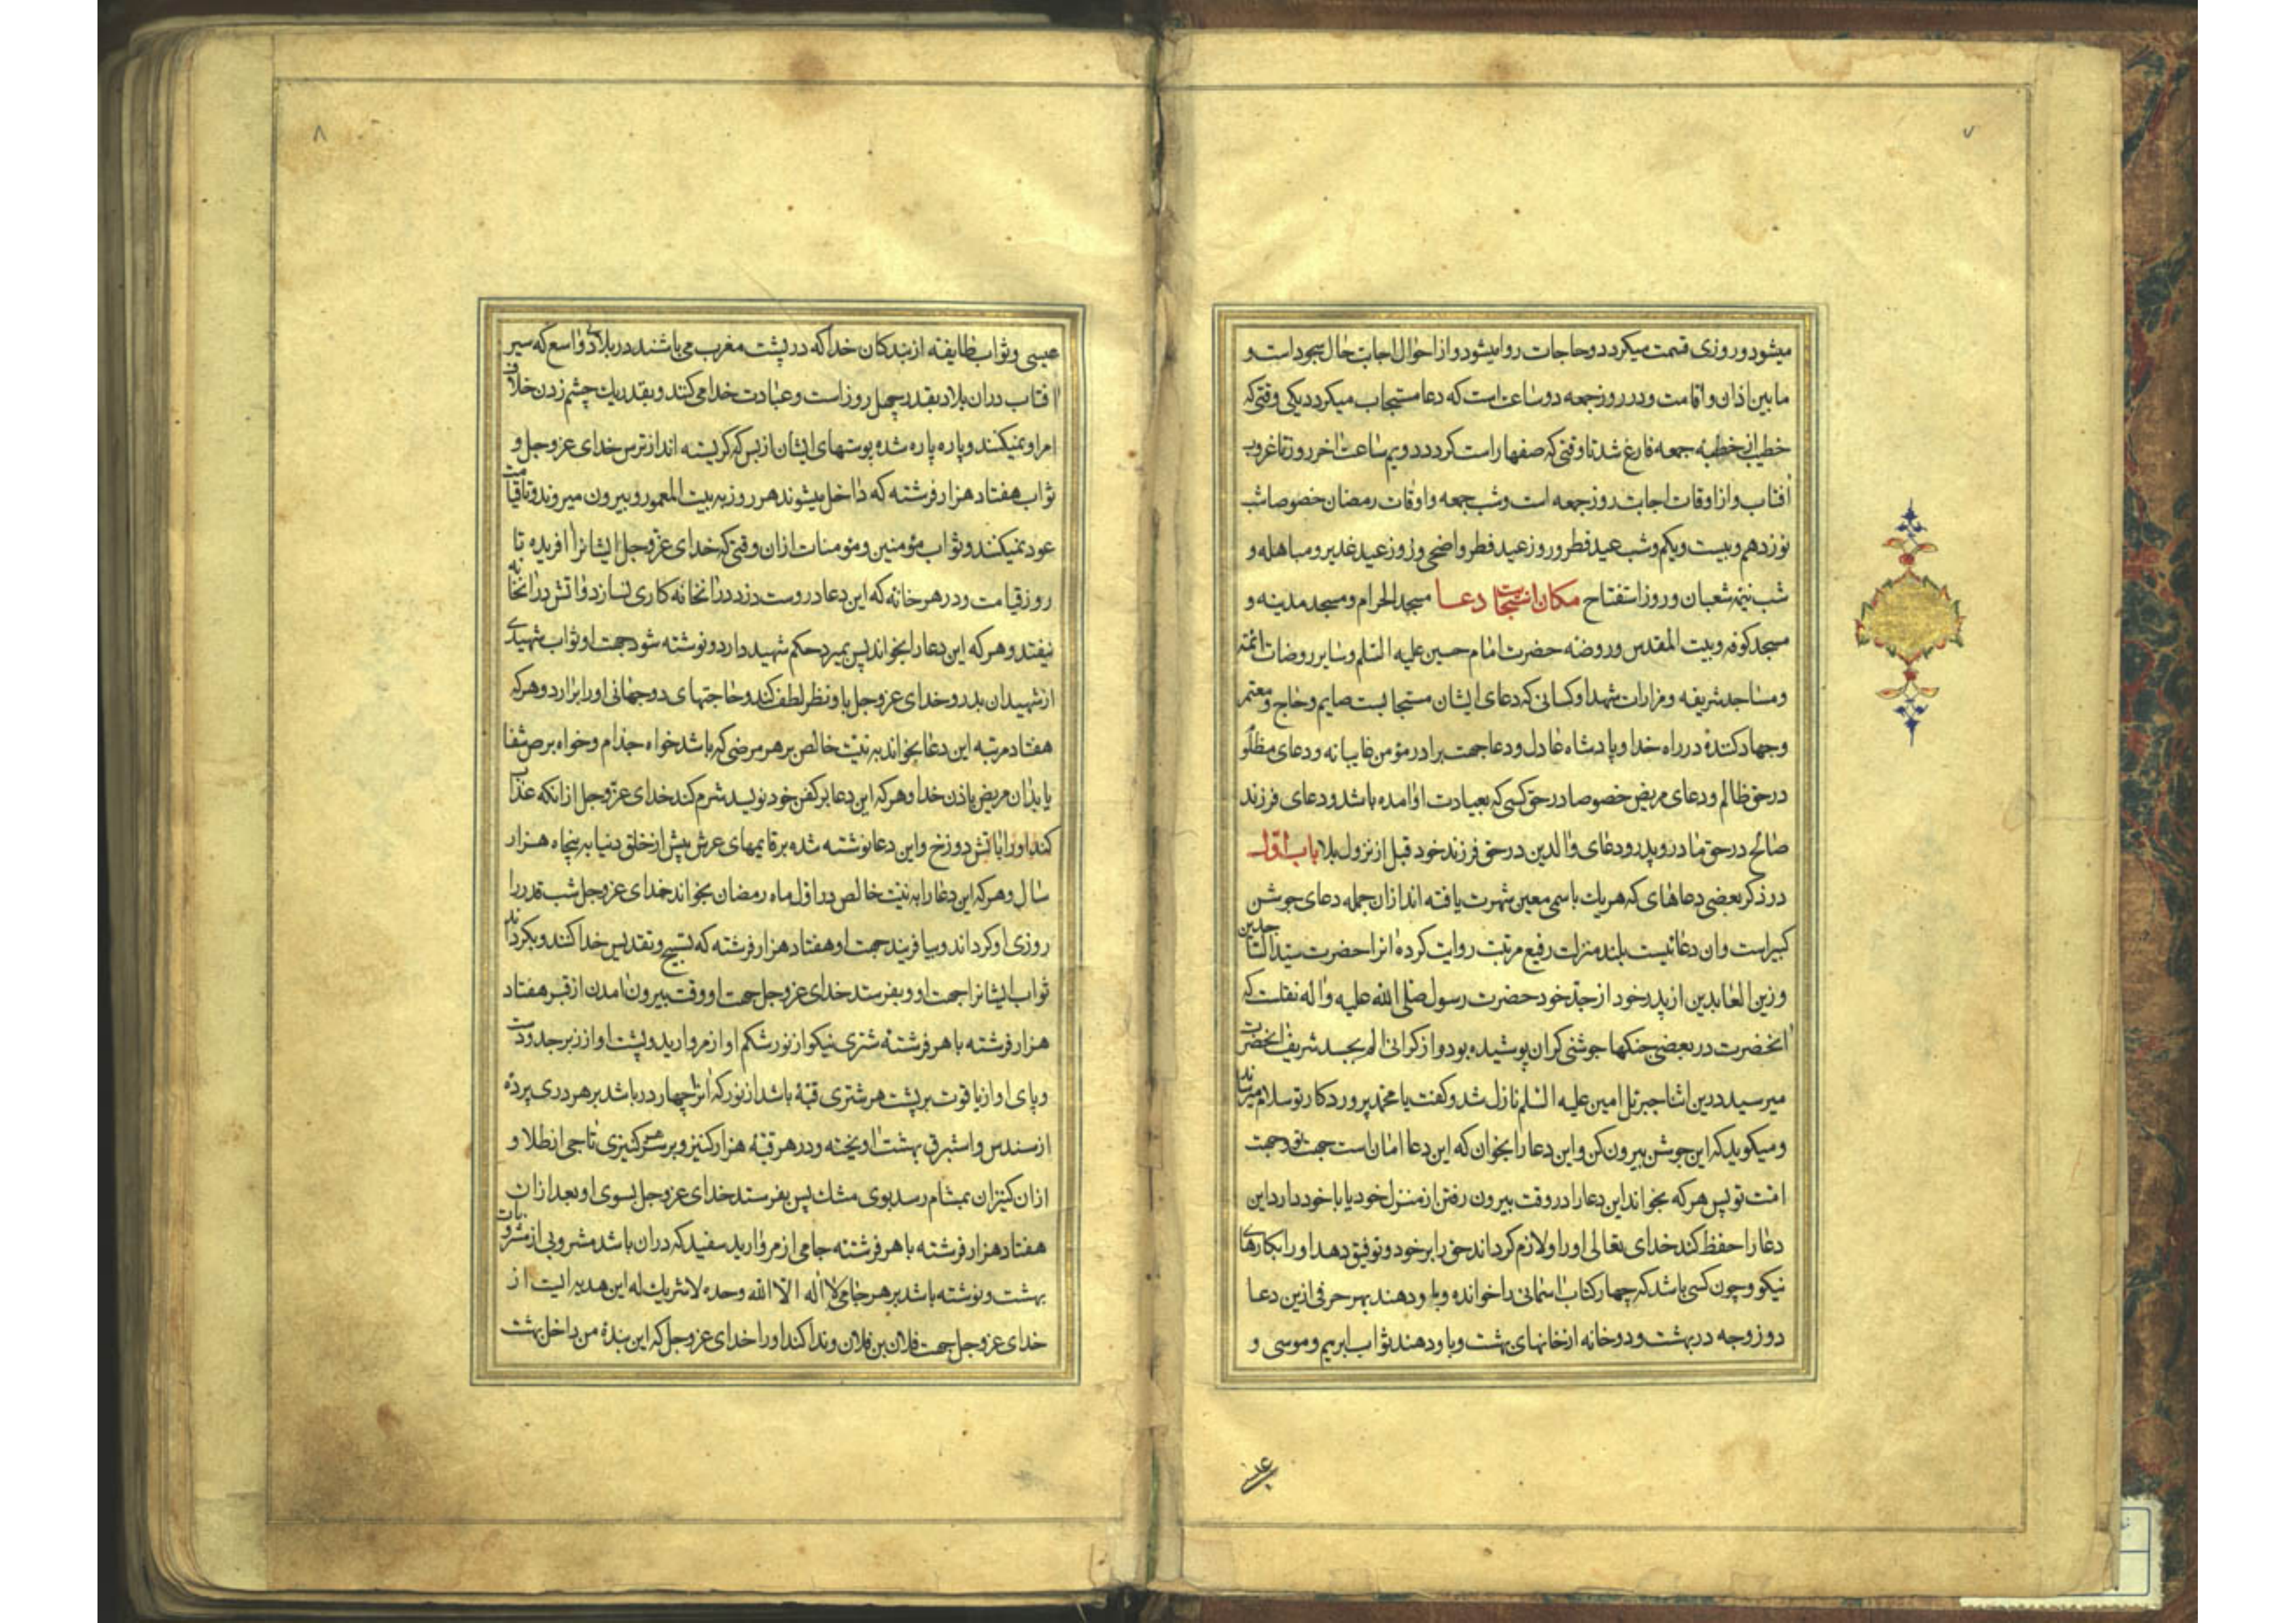 ۷
میشود و روزی قسمت میکردد و حاجات روا میشود و از احوال اجابت حال سجود است و
ما بین اذان و اقامت و در روز جمعه دو ساعت است که دعا مستجاب میکردد یکی وقتی که
خطیب از خطبه جمعه فارغ شد تا وقتی که صفها راست کردد دویم ساعت اخر روز تا غروب
افتاب و از اوقات اجابت روز جمعه است و شب جمعه و اوقات رمضان خصوصا شب
نوزدهم و بیست و یکم و شب عید فطر و روز عید فطر و اضحی و روز عید غدیر و مباهله و
شب نیمه شعبان و روز استفتاح مکان استجابت دعا مسجد الحرام و مسجد مدینه و
مسجد کوفه و بیت المقدس و روضه حضرت امام حسین علیه السلم و سایر روضات ائمه
و مساجد شریفه و مزارات شهدا و کسانی که دعای ایشان مستجابست صایم و حاج و معتمر
و جهاد کنندهٔ در راه خدا و پادشاه عادل و دعا جهت برادر مؤمن غایبانه و دعای مظلوم
در حق ظالم و دعای مریض خصوصا در حق کسی که بعیادت او امده باشد و دعای فرزند
صالح در حق مادر و پدر و دعای والدین در حق فرزند خود قبل از نزول بلا باب اول
در ذکر بعضی دعاهای که هر یک باسمی معین شهرت یافته اند از ان جمله دعای جوشن
کبیر است و ان دعائیست بلند منزلت رفیع مرتبت روایت کرده انرا حضرت سید الساجدین
و زین العابدین از پدر خود از جد خود حضرت رسول صلی الله علیه و اله نقلست که
انحضرت در بعضی جنکها جوشنی کران پوشیده بود و از کرانی الم بجسد شریف انحضرت
میرسید درین اثنا جبرئل امین علیه السلم نازل شد و کفت یا محمد پروردکار تو سلام میرساند
و میکوید که این جوشن بیرون کن و این دعا را بخوان که این دعا امان است جهت تو و جهت
امت تو پس هر که بخواند این دعا را در وقت بیرون رفتن از منزل خود یا با خود دارد این
دعا را حفظ کند خدای تعالی او را و لازم کرداند حق را بر خود و توفیق دهد او را بکارهای
نیکو و چون کسی باشد که چهار کتاب اسمانی را خوانده و باو دهند بهر حرفی ازین دعا
دو زوجه در بهشت و دو خانه از خانهای بهشت و باو دهند ثواب ابریم و موسی و
۸
عیسی و ثواب طایفه از بندکان خدا که در پشت مغرب می باشند در بلادی واسع که سیر
افتاب در ان بلاد بقدر چهل روز است و عبادت خدا می کنند و بقدر یک چشم زدن خلاف
امر او نمیکنند و پاره پاره شده پوستهای ایشان از بس که کریسته اند از ترس خدای عز و جل و
ثواب هفتاد هزار فرشته که داخل میشوند هر روز به بیت المعمور و بیرون میروند و تا قیامت
عود نمیکنند و ثواب مؤمنین و مؤمنات از ان وقتی که خدای عز و جل ایشانرا افریده تا
روز قیامت و در هر خانه که این دعا در وست دزد در انخانه کاری نسازد و اتش در انخانه
نیفتد و هر که این دعا را بخواند پس بمیرد حکم شهید دارد و نوشته شود جهت او ثواب شهیدی
از شهیدان بدر و خدای عز و جل باو نظر لطف کند و حاجتهای دو جهانی او را برارد و هر که
هفتاد مرتبه این دعا بخواند به نیت خالص بر هر مرضی که باشد خواه جذام و خواه برص شفا
یابد ان مریض باذن خدا و هر که این دعا بر کفن خود نویسد شرم کند خدای عز و جل از انکه عذاب
کند او را باتش دوزخ و این دعا نوشته شده بر قایمهای عرش پیش از خلق دنیا به پنجاه هزار
سال و هر که این دعا را به نیت خالص در اول ماه رمضان بخواند خدای عز و جل شب قدر را
روزی او کرداند و بیافریند جهت او هفتاد هزار فرشته که تسبیح و تقدیس خدا کنند و بکرداند
ثواب ایشانرا جهت او و بفرستد خدای عز و جل جهت او وقت بیرون امدن از قبر هفتاد
هزار فرشته با هر فرشتهٔ شتری نیکو از نور شکم او از مروارید و پشت او از زبرجد و دست
و پای او از یاقوت بر پشت هر شتری قبهٔ باشد از نور که انرا چهار در باشد بر هر دری پرده
از سندس و استبرق بهشت اویخته و در هر قبهٔ هزار کنیز و بر سر هر کنیزی تاجی از طلا و
ازان کنیزان بمشام رسد بوی مشک پس بفرستد خدای عز و جل بسوی او بعد ازان
هفتاد هزار فرشته با هر فرشته جامی از مروارید سفید که در ان باشد مشروبی از مشروبات
بهشت و نوشته باشد بر هر جامی لا اله الا الله وحده لا شریک له این هدیه ایست از
خدای عز و جل جهت فلان بن فلان و ندا کند او را خدای عز و جل که این بندهٔ من داخل بهشت